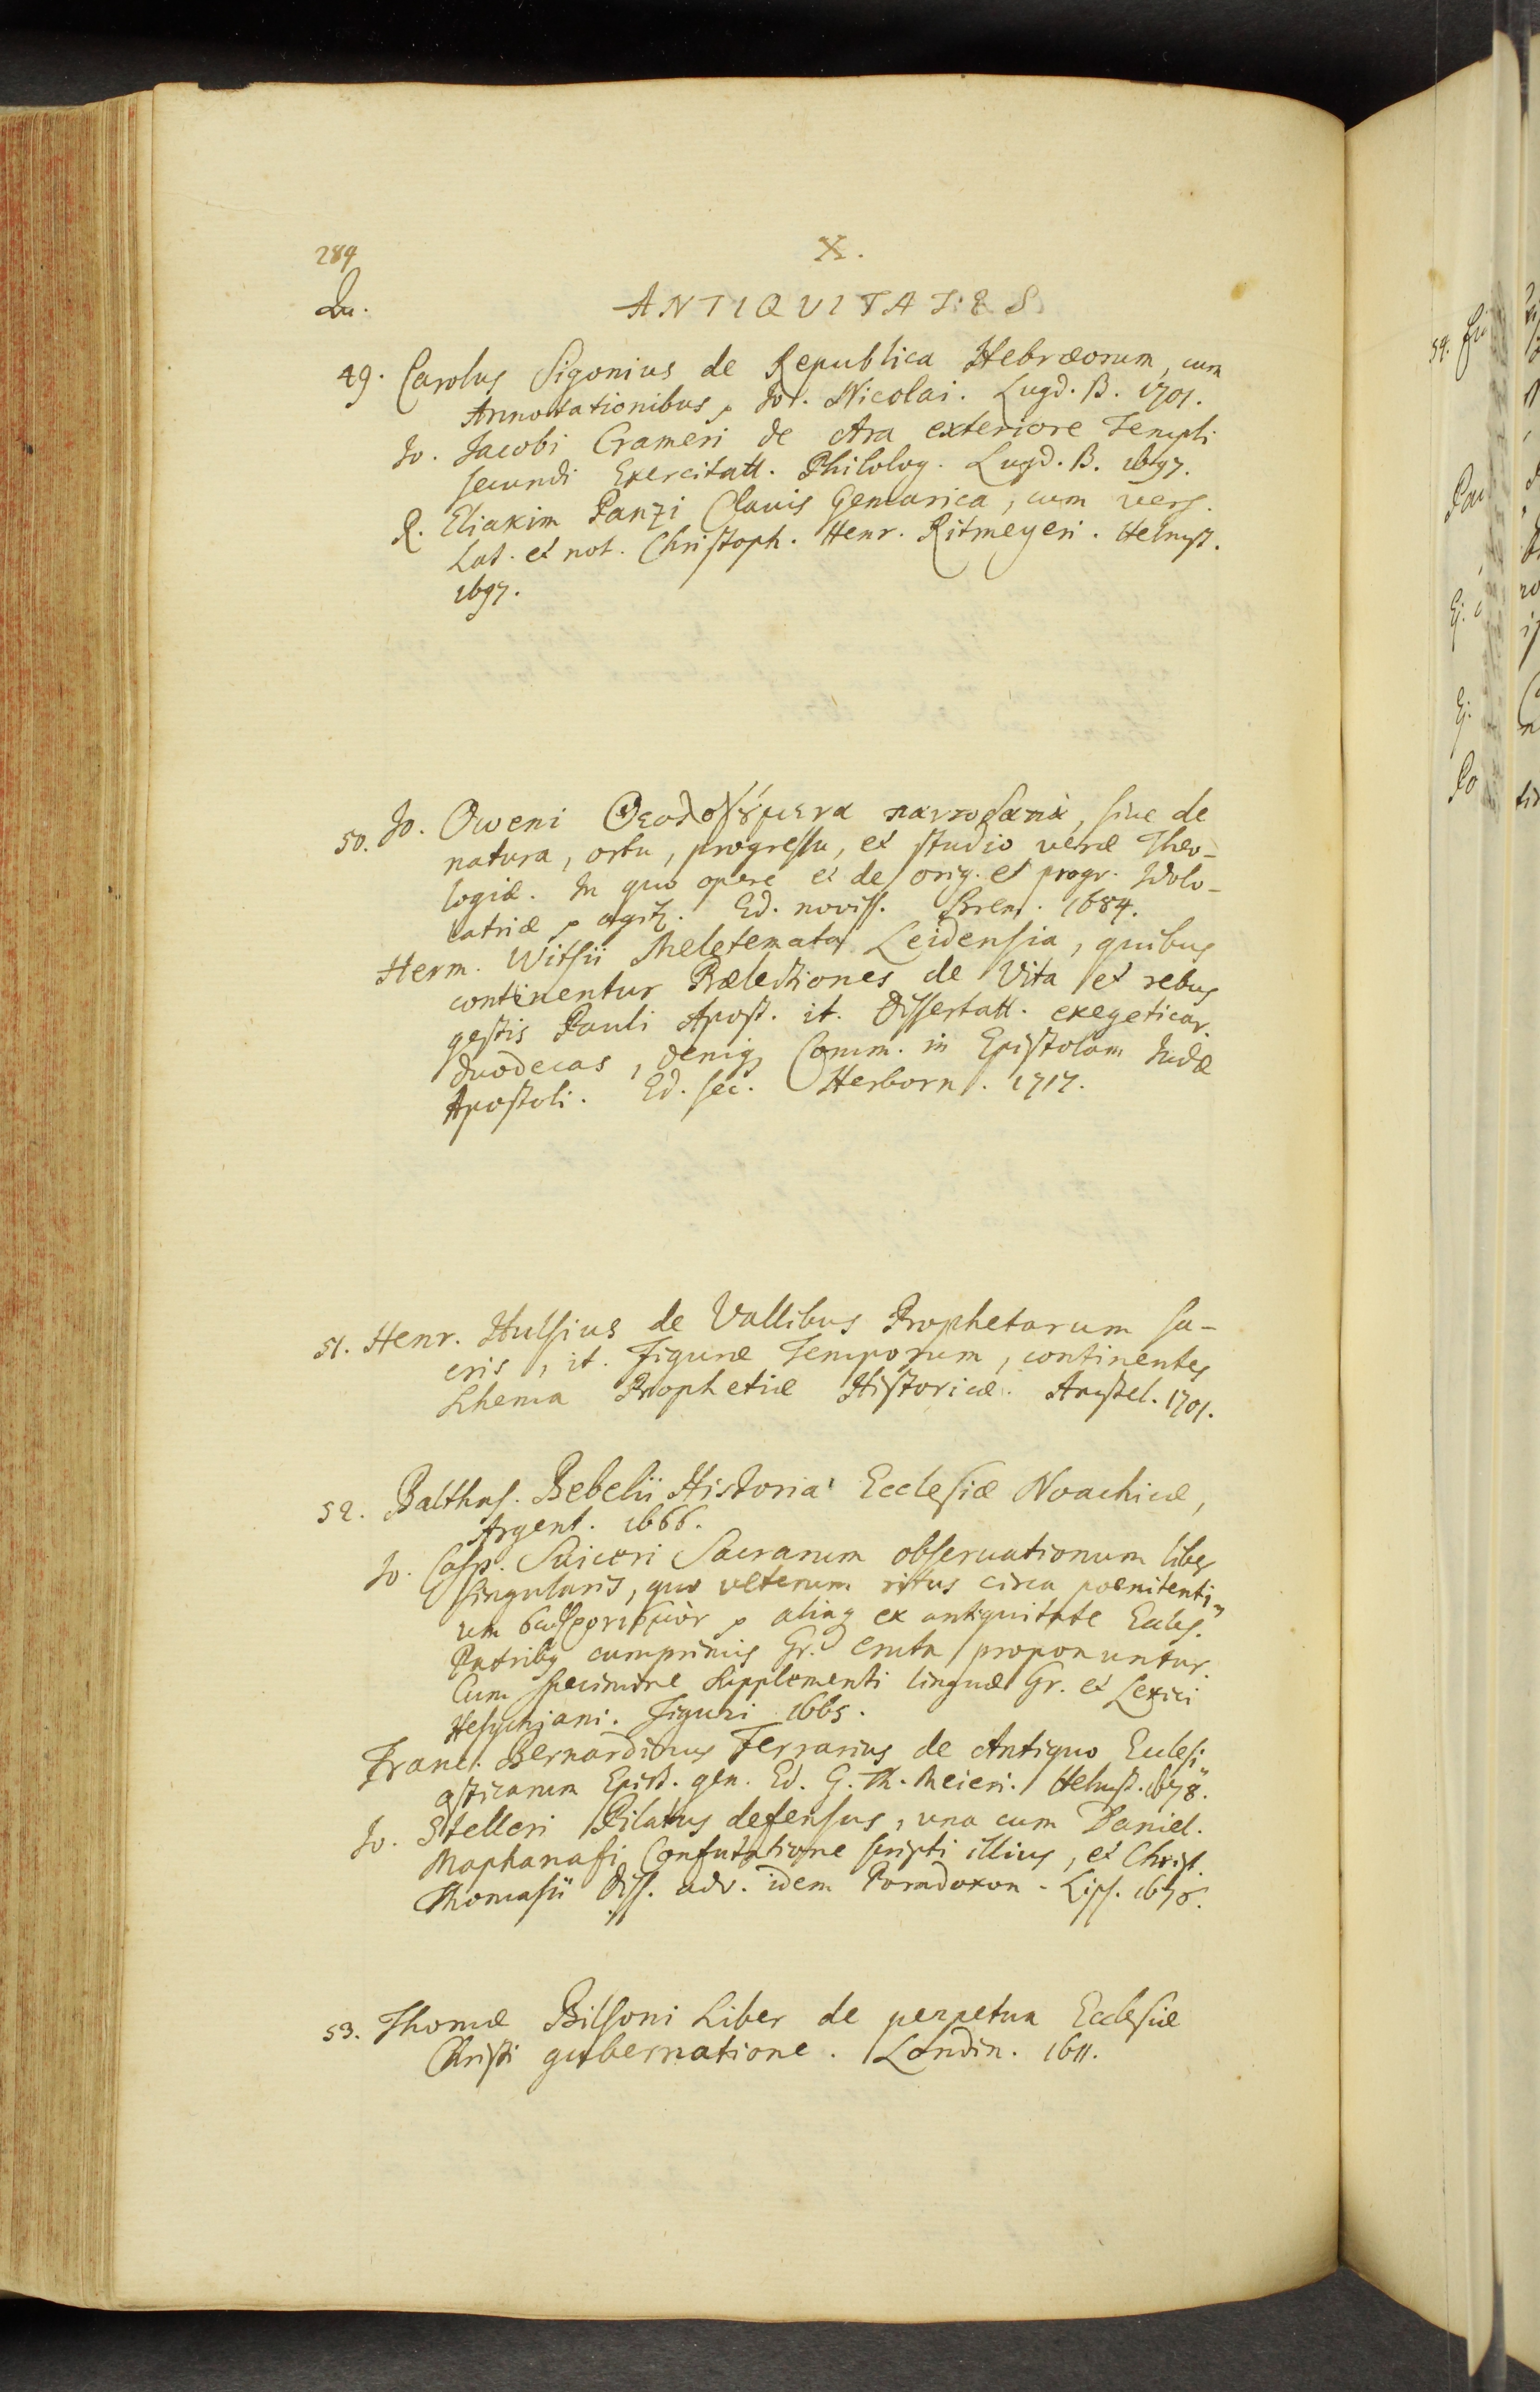 284
X.
Qu.
ANTIQUITATES
49. Carolus Sigonius de Republica Hebræorum, cum
Annotationibus, Joh. Nicolai. Lugd. B. 1701.
Jo. Jacobi Crameri de Ara exteriore Templi
secundi Exercitatt. Philolog. Lugd. B. 1697.
R. Eliakim Panzi Clavis Gemarica, cum vers.
Lat. et not. Christoph. Henr. Ritmeyeri. Helmst.
1697.
50. Jo. Oweni Θεολογούμενα παντοδαπὰ, sive de
natura, ortu, progressu, et studio veræ Theo-
logiæ. In quo opere et de orig. et progr. Idolo-
latriæ agitur. Ed. noviss. Brem. 1684.
Herm. Witsii Meletemata Leidensia, quibus
continentur Prælectiones de Vita et rebus
gestis Pauli Apost. it. Dissertatt. exegeticar.
duodecas, deniq Comm. in Epistolam Judæ
Apostoli. Ed. sec. Herborn. 1717.
51. Henr. Hulsius de Vallibus Prophetarum sa-
cris, it. Figuræ Temporum, continentes
Schema Prophetiæ Historicæ. Amstel. 1701.
52. Balthas. Bebelii Historia Ecclesiæ Noachicæ,
Argent. 1666.
Jo. Casp. Suiceri Sacrarum observationum liber
singularis, quo veterum ritus circa poenitenti-
um aliaq ex antiquitate Eccles.
Patribq cumprimis Gr. eruta proponuntur.
Cum specimine Supplementi linguæ Gr. et Lexici
Hesychiani. Tiguri 1665.
Franc. Bernardinus Ferrarius de Antiquo Eclesi-
asticarum Epist. gen. Ed. G. Th. Meieri. Helmst. 1678.
Jo. Stelleri Pilatus defensus, una cum Daniel.
Maphanafi Confutatione scripti illius, et Christ.
Thomasii Diss. adv. idem Paradoxon. Lips. 1676.
53. Thomæ Bilsoni Liber de perpetua Ecclesiæ
Christi gubernatione. Londin. 1611.